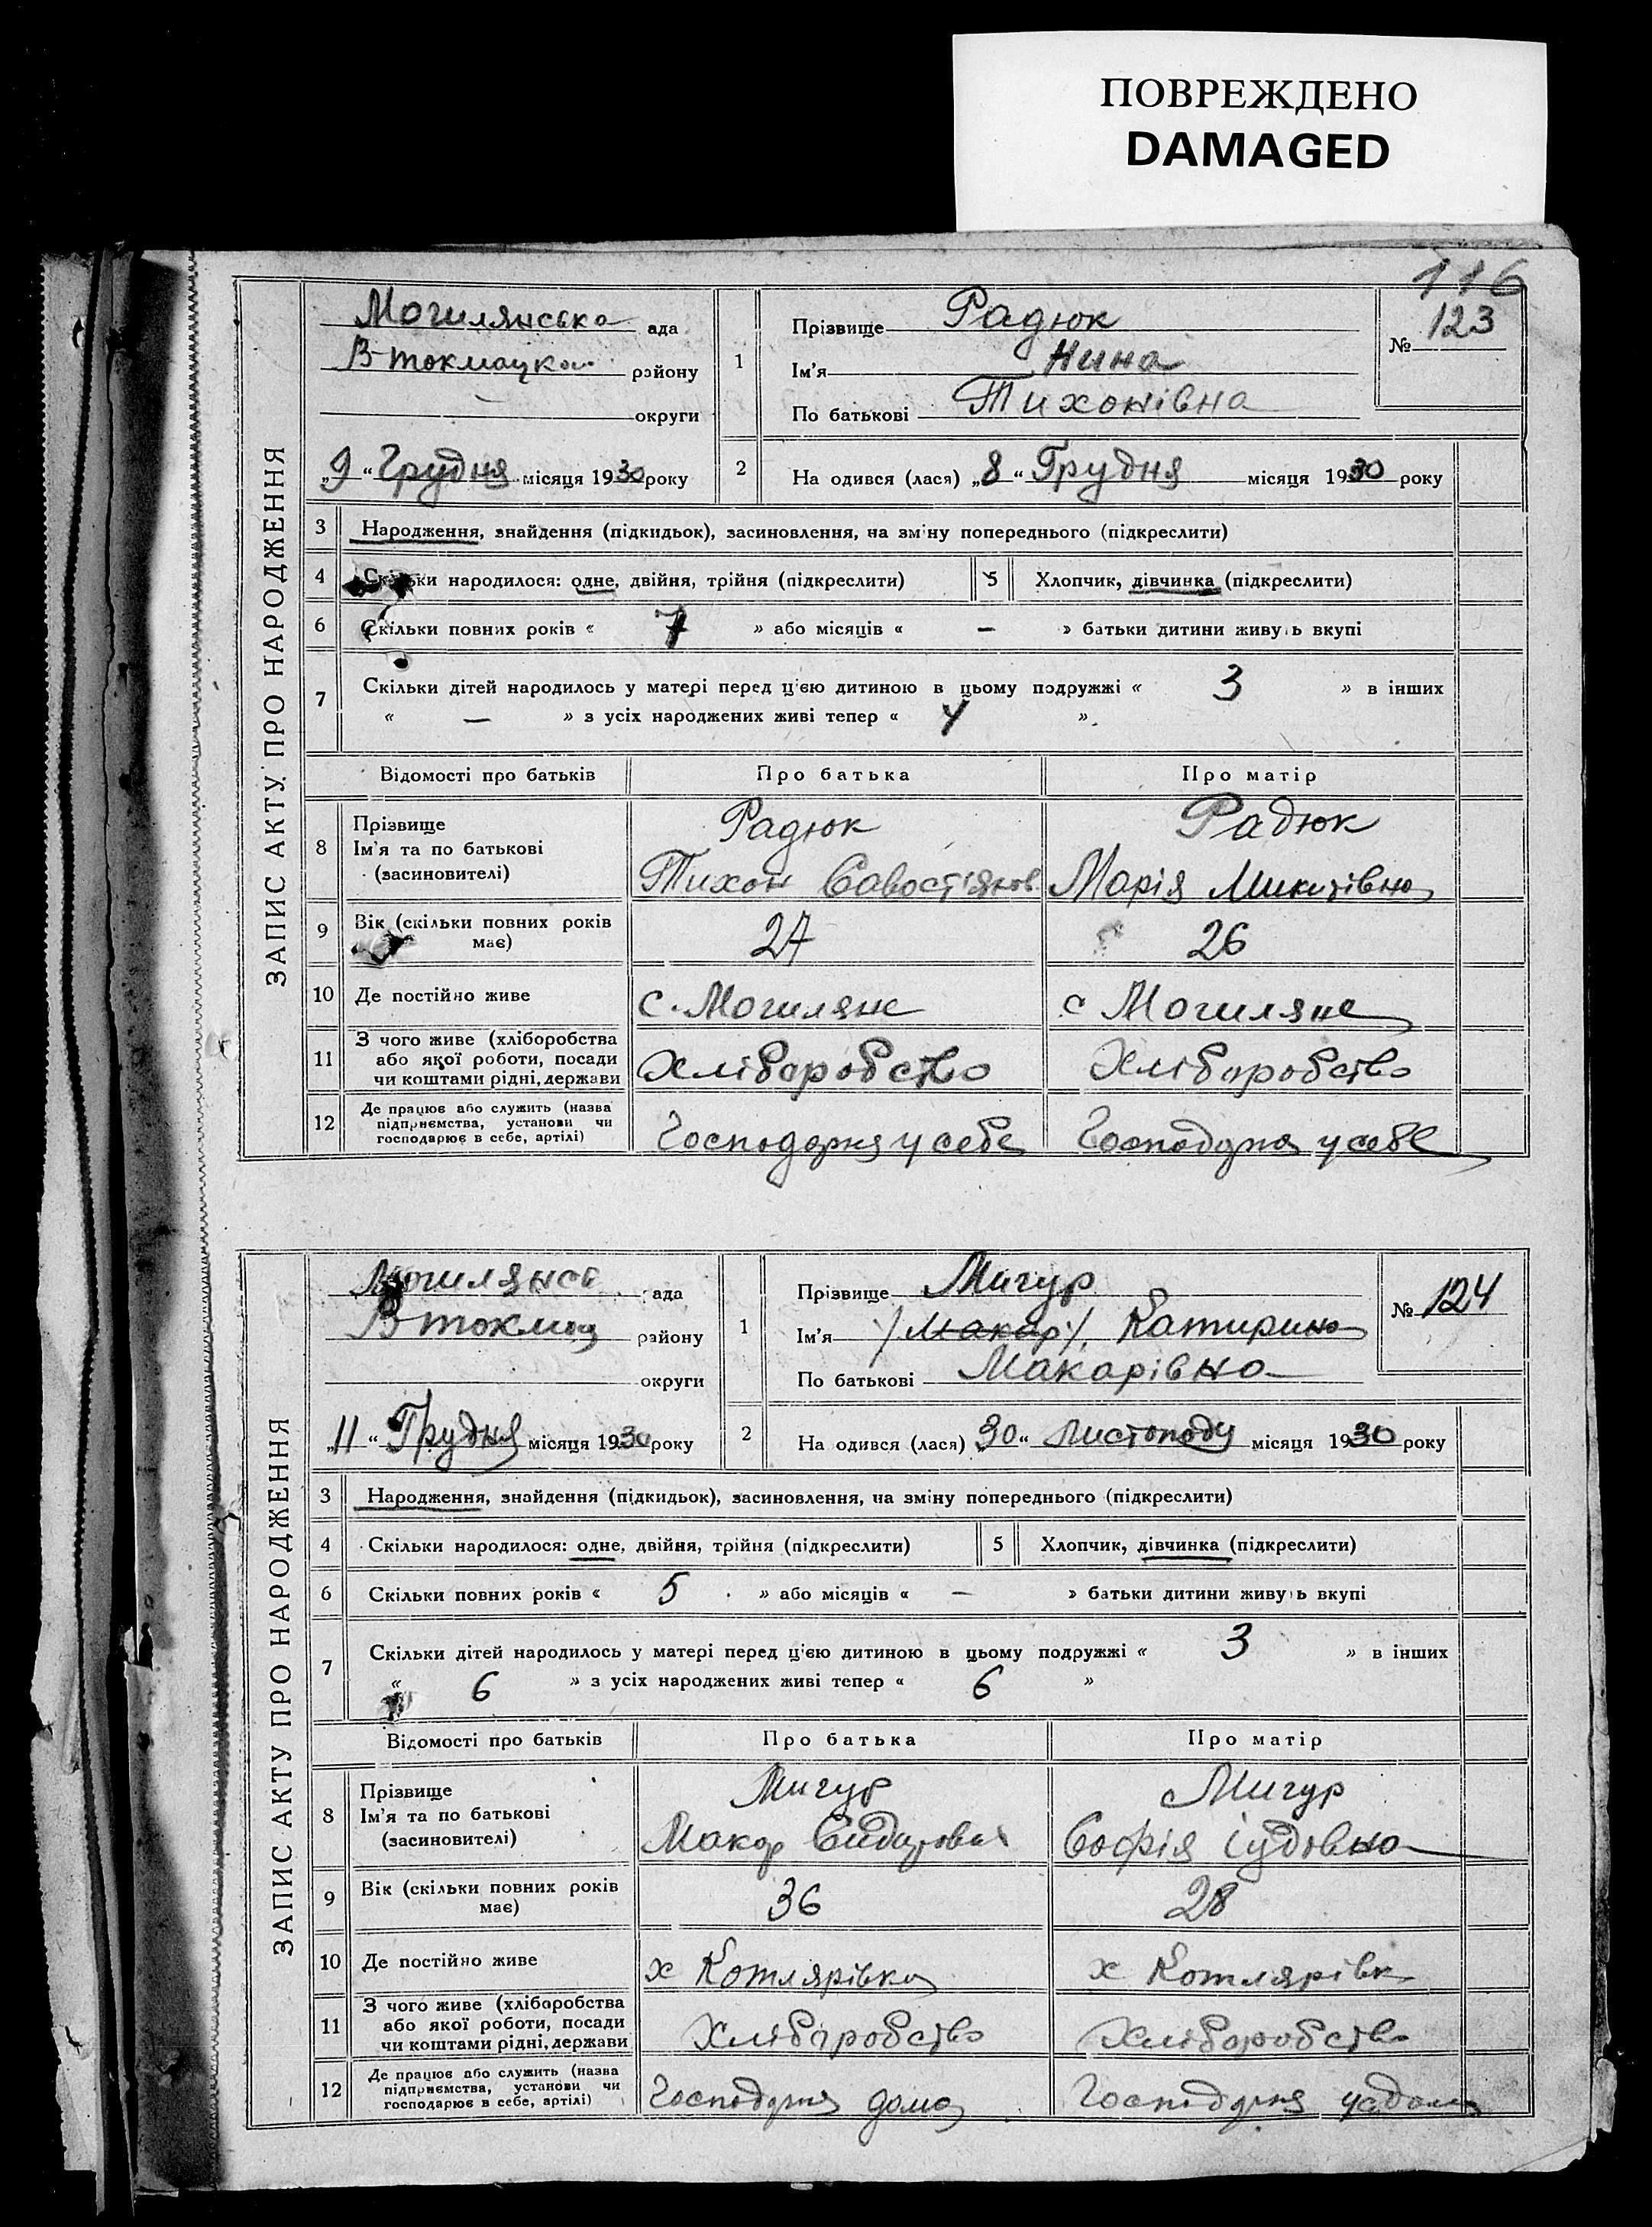 ПОВРЕЖДЕНО
DAMAGED
116
ЗАПИС АКТУ ПРО НАРОДЖЕННЯ
Могилянська ада
В-токмацка району
округи
1
Прізвище Радюк
Ім'я Нина
По батькові Тихонівна
№ 123
„9“ Грудня місяця 1930 року
2
На одився (лася) „8“ Грудня місяця 1930 року
3 Народження, знайдення (підкидьок), засиновлення, на зміну попереднього (підкреслити)
4 Скільки народилося: одне, двійня, трійня (підкреслити)
5 Хлопчик, дівчинка (підкреслити)
6 Скільки повних років « 7 » або місяців « — » батьки дитини живуь вкупі
7 Скільки дітей народилось у матері перед ц'ею дитиною в цьому подружжі « 3 » в інших
« — » з усіх народжених живі тепер « 4 »
Відомості про батьків Про батька Про матір
8 Прізвище
Ім'я та по батькові
(засиновителі)
Радюк
Тихон Савостіянов
Радюк
Марія Микитівна
9 Вік (скільки повних років
має)
27 26
10 Де постійно живе с. Могиляне с Могиляне
11 З чого живе (хліборобства
або якої роботи, посади
чи коштами рідні, держави
Хліборобство Хліборобство
12 Де працює або служить (назва
підприємства, установи чи
господарює в себе, артілі)
Господарня у себе Господарня у себе
ЗАПИС АКТУ ПРО НАРОДЖЕННЯ
Могилянсь ада
В токмац району
округи
1
Прізвище Мигур
Ім'я /Макар/ Катирина
По батькові Макарівна
№ 124
„11“ Грудня місяця 1930 року
2
На одився (лася) 30“ Листопаду місяця 1930 року
3 Народження, знайдення (підкидьок), засиновлення, на зміну попереднього (підкреслити)
4 Скільки народилося: одне, двійня, трійня (підкреслити)
5 Хлопчик, дівчинка (підкреслити)
6 Скільки повних років « 5 » або місяців « — » батьки дитини живуь вкупі
7 Скільки дітей народилось у матері перед ц'ею дитиною в цьому подружжі « 3 » в інших
« 6 » з усіх народжених живі тепер « 6 »
Відомості про батьків Про батька Про матір
8 Прізвище
Ім'я та по батькові
(засиновителі)
Мигур
Макар Сидарович
Мигур
Софія Іудовна
9 Вік (скільки повних років
має)
36 28
10 Де постійно живе х Котлярівка х Котлярівк
11 З чого живе (хліборобства
або якої роботи, посади
чи коштами рідні, держави
Хліборобство Хліборобство
12 Де працює або служить (назва
підприємства, установи чи
господарює в себе, артілі)
Господарня дома Господарня